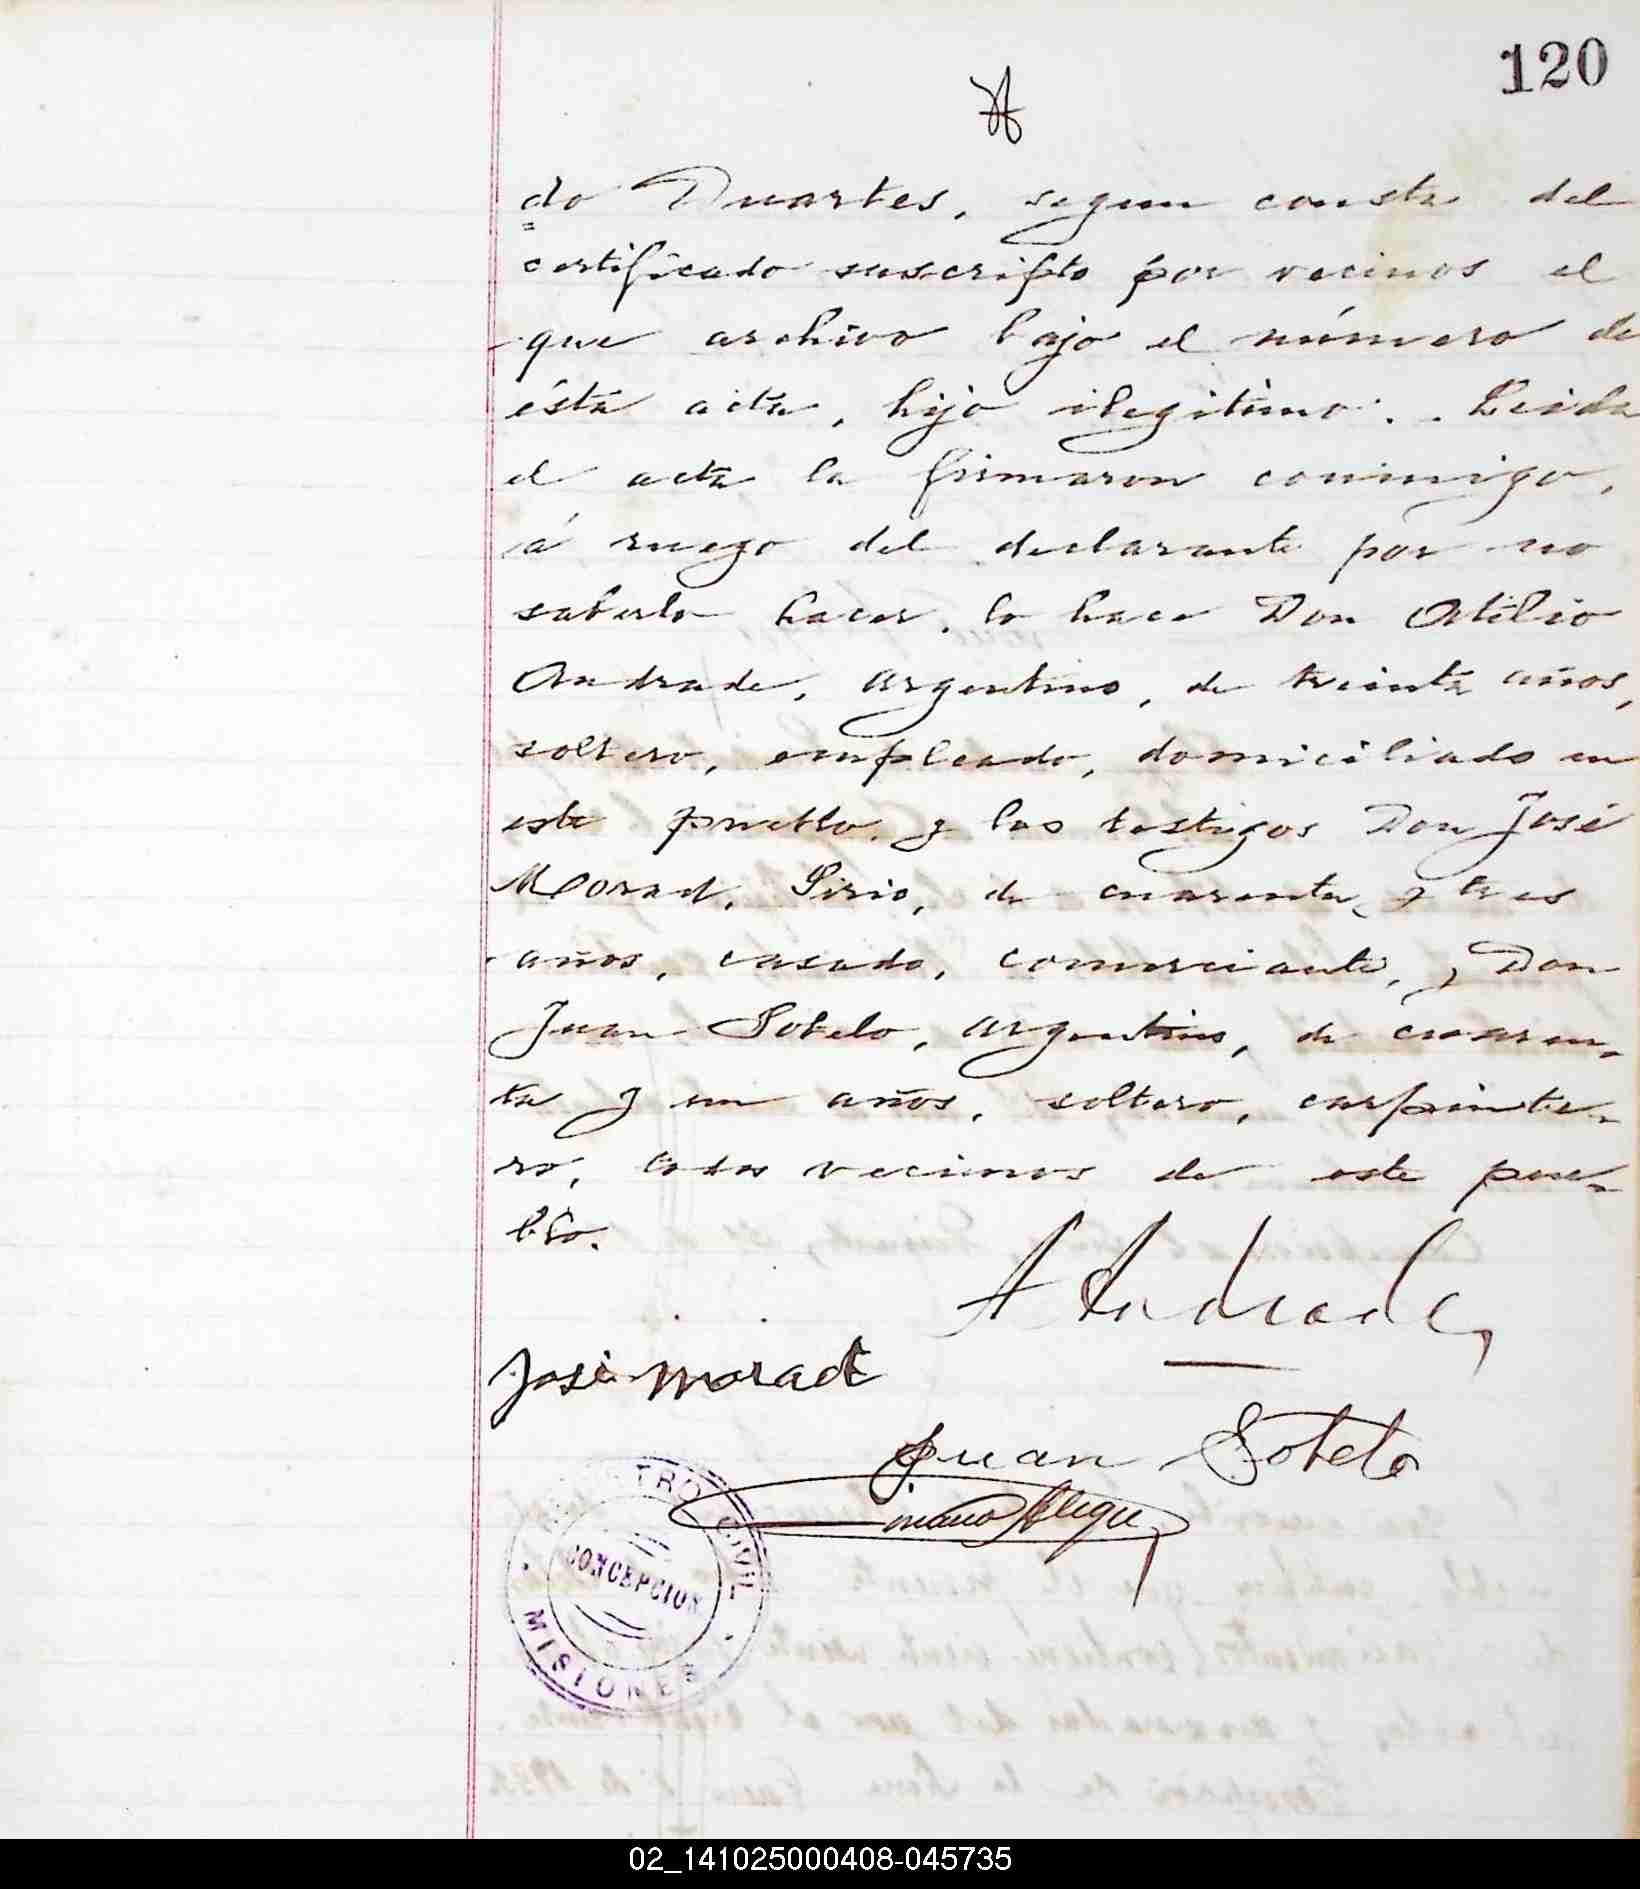 120
do Duartes, segun consta del
certificado suscripto por vecinos el
que archivo bajo el número de
ésta acta, hijo ilegitimo. Leida
el acta la firmaron conmigo,
á ruego del declarante por no
saberlo hacer, lo hace Don Atilio
Andrade, argentino, de treinta años,
soltero, empleado, domiciliado en
este pueblo, y los testigos Don José
Morad, Sirio, de cuarenta y tres
años, casado, comerciante, y Don
Juan Sotelo, argentino, de cuaren-
ta y un años, soltero, carpinte-
ro, todos vecinos de este pue-
blo.
A Andrade
José Morad
Juan Sotelo
CIVIL
CONCEPCION
MISIONES
02_141025000408-045735